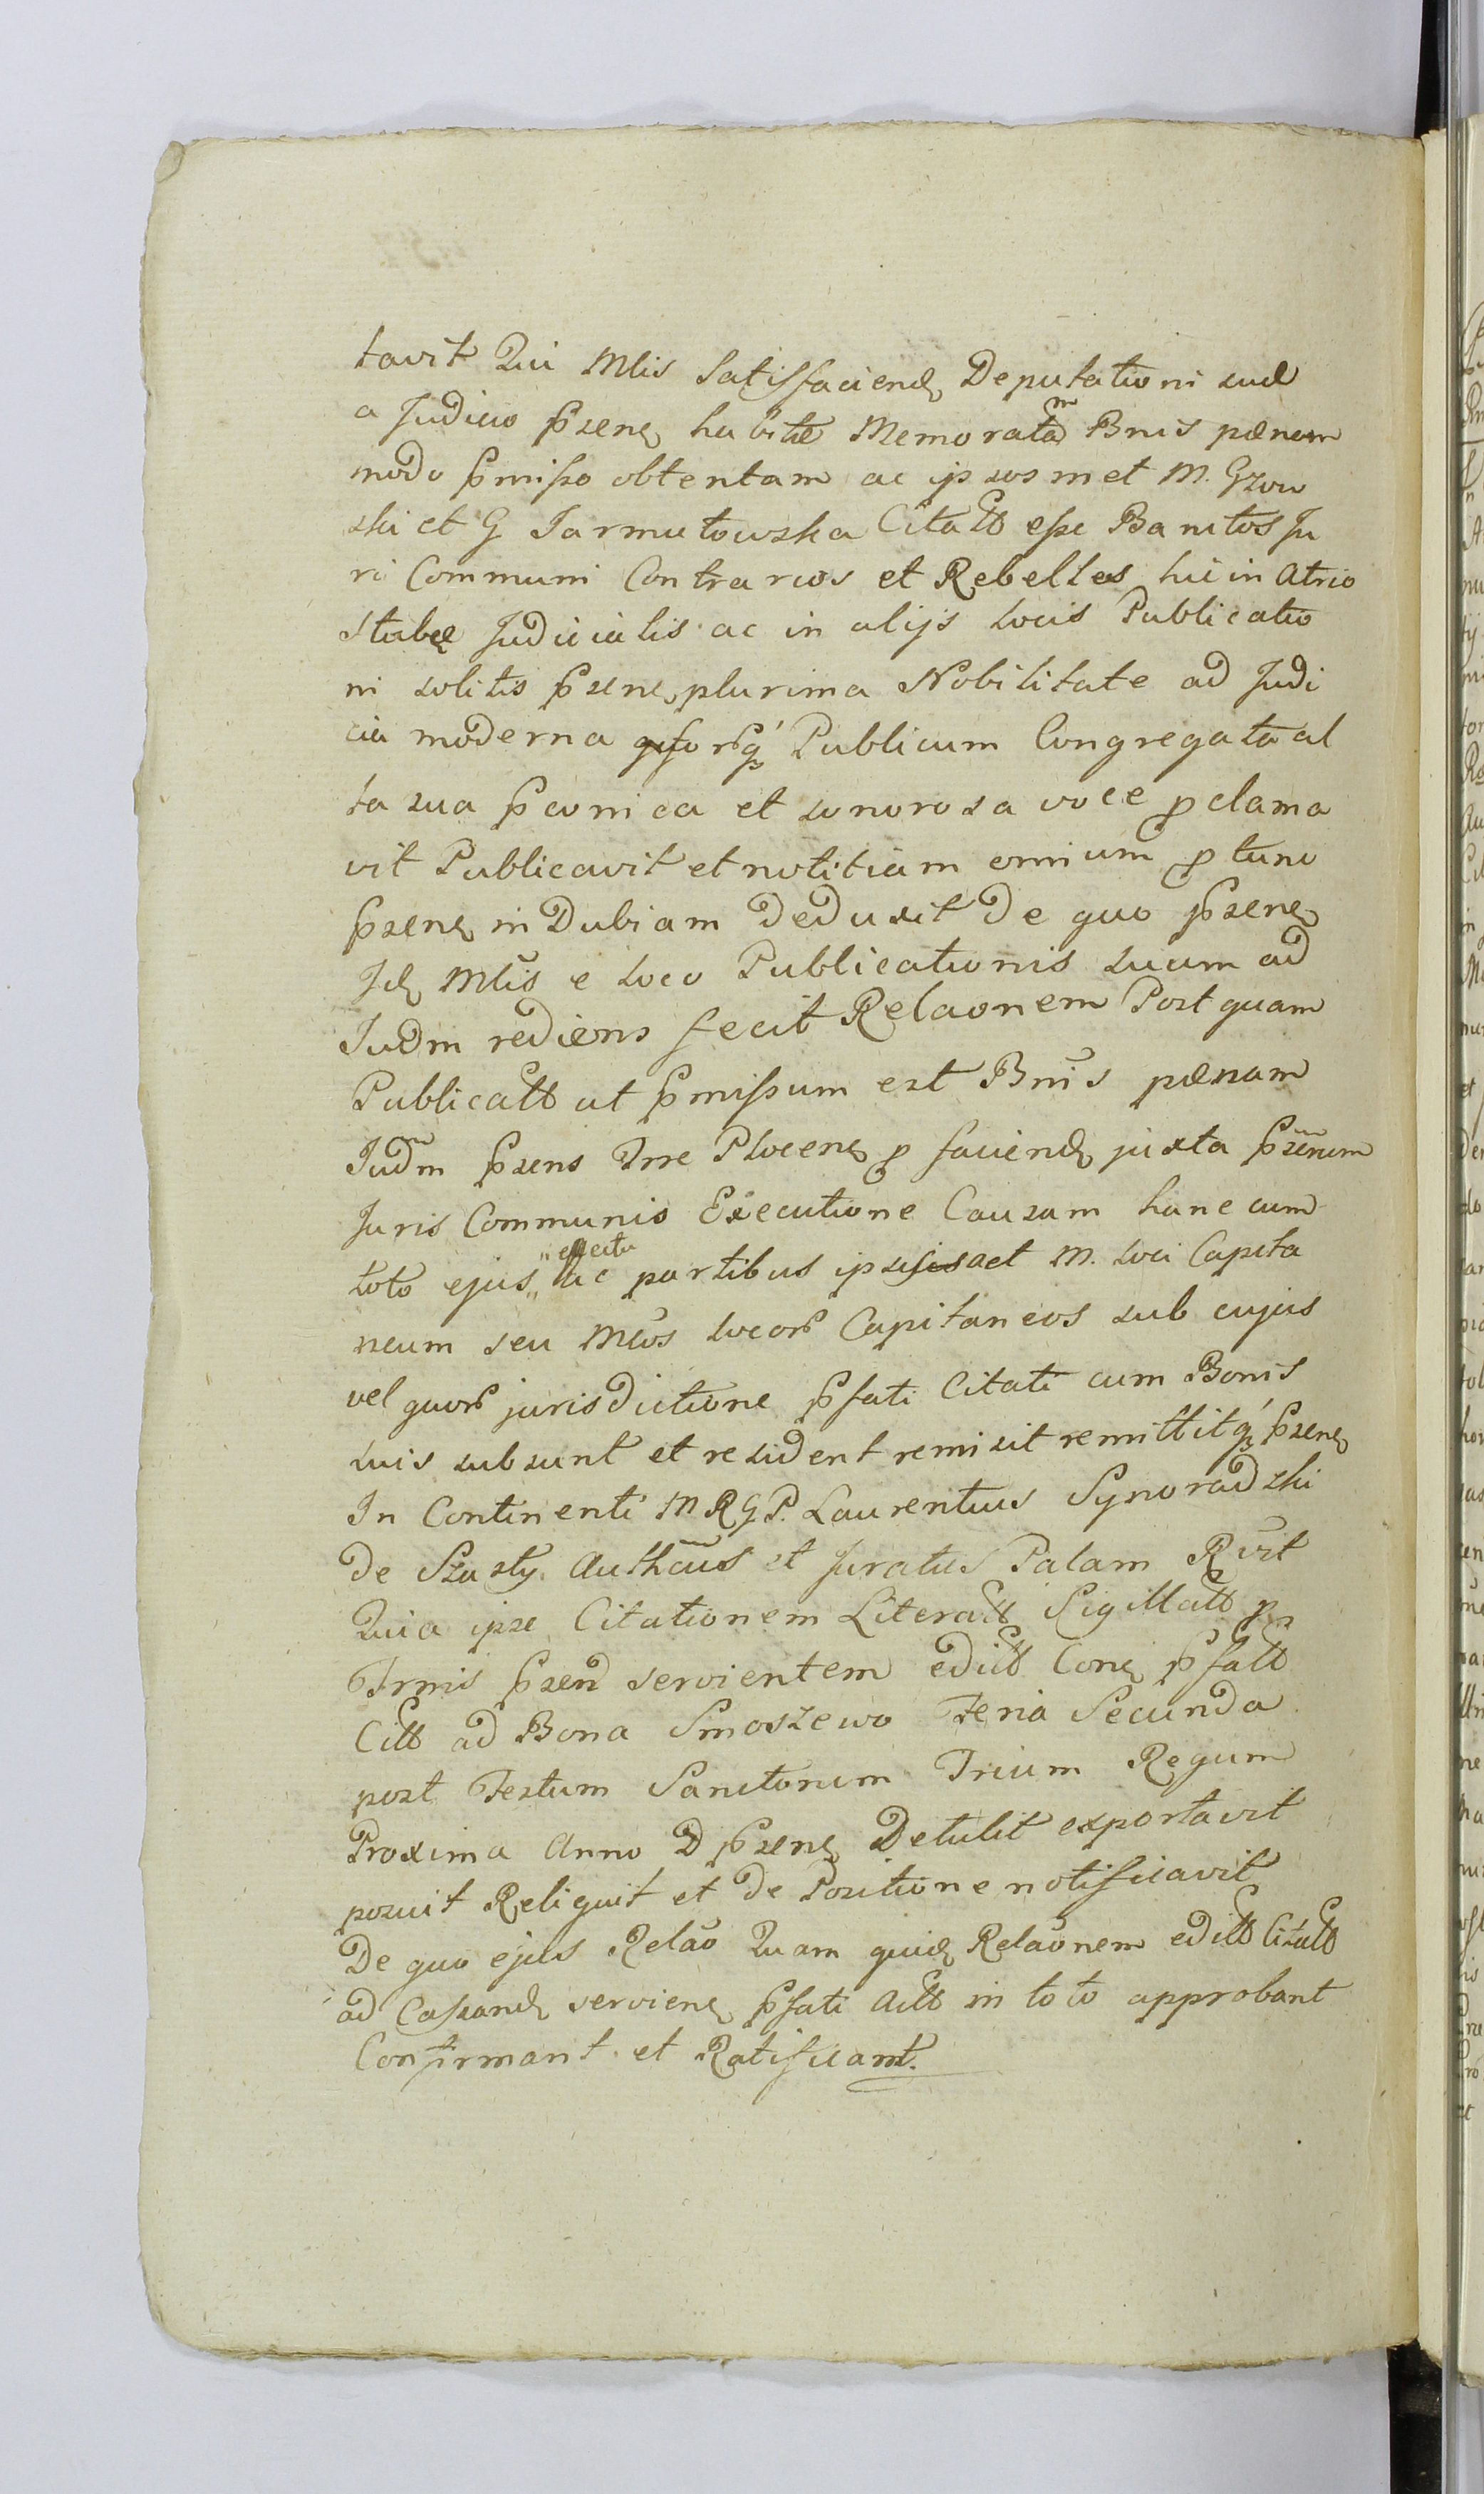 tavit Qui Mlis Satisfaciend Deputationi suæ
a Judicio Pszenę habitæ Memoratam Bnis pænam
modo Pmisso obtentam ac ipsosmet M. Gzow
ski et G Jarmutowska Citatt esse Banitos Ju
ri Communi Contrarios et Rebelles hic in Atrio
Stubæ Judicialis ac in alijs locis Publicatio
ni solitis psene plurima Nobilitate ad Judi
cia moderna forq Publicum Congregata al
ta sua pconica et sonorosa voce pclama
vit Publicavit et notitiam omnium p tunc
psene in Dubiam Deduxit De quo psene
Id Mlis e loco Publicationis suum ad
Judm rediens fecit Relaonem Postquam
Publicatt ut pmissum est Bnis pænam
Judm psens Trre Plocens p faciend juxta psenium
Juris Communis Executione Causam hanc cum
toto ejus „effectu„ ac partibus ipsis act M. loci Capita
neum seu Mcos locor Capitaneos sub cujus
vel quor jurisdictione pfati Citati cum Bonis
suis subsunt et resident remisit remittitq psens
In Continenti M R G P. Laurentius Synoradzki
De Szasty. Authcus et Juratus Palam Rvit
Quia ipse Citationem Literatt Sigillatt p
Trmis psend servientem edict Cone pfatt
Citt ad Bona Smoszewo Feria Secunda
post Festum Sanctorum Trium Regum
Proxima Anno D psene Detulit exportavit
posuit Reliquit et de Positione notificavit
De quo ejus Relao Quam quid Relaonem editt Citatt
ad Cassand serviens pfati Actt in toto approbant
Confirmant et Ratificant.